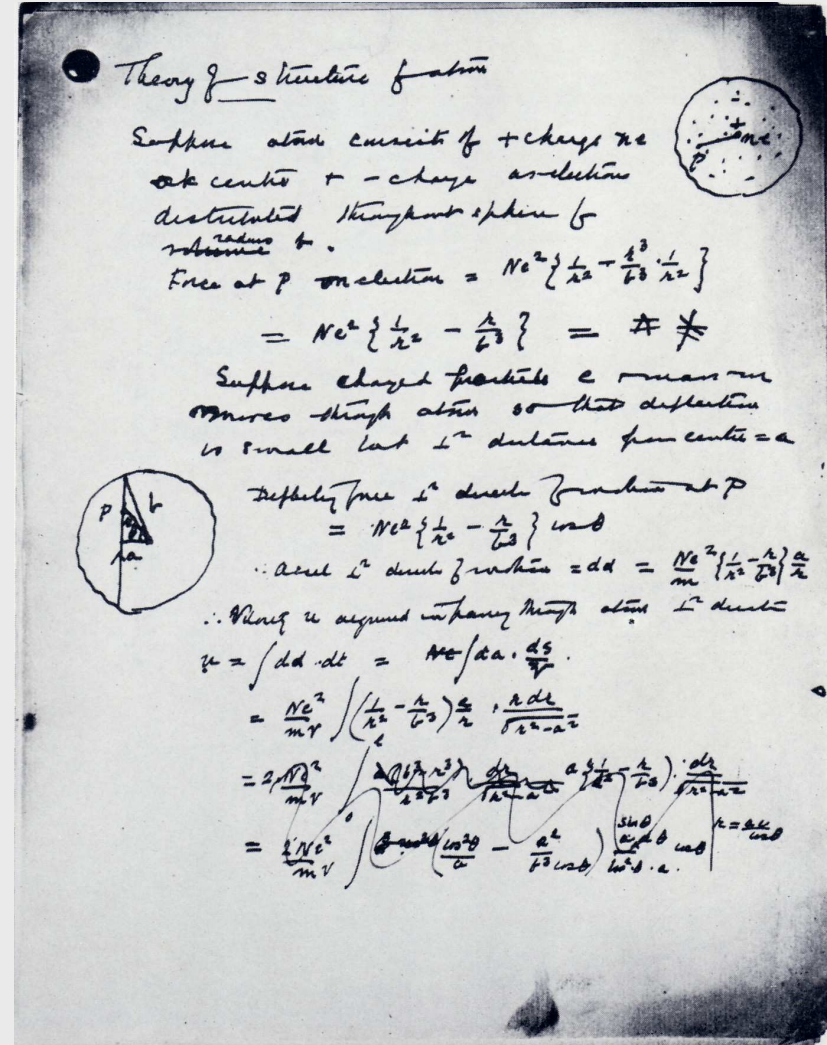 Theory of structure of atoms
Suppose atom consists of + charge ne
at centre + - charge as electrons
distributed throughout sphere of
radius b.
Force at P on electron = Ne² { 1/r² - r³/b³ · 1/r² }
= Ne² { 1/r² - r/b³ } =
Suppose charged particle e + mass m
moves through atom so that deflection
is small but ⊥ʳ distance from centre = a
Deflecting force ⊥ʳ direct. of motion at P
= Ne² { 1/r² - r/b³ } cos θ
∴ accel ⊥ʳ direct of motion = dd = Ne²/m { 1/r² - r/b³ } a/r
∴ Velocity u acquired in passing through atom ⊥ʳ direct
u = ∫ dd · dt = ∫ da · ds/V.
= Ne²/mV ∫ ( 1/r² - r/b³ ) a/r · r dr/√r²-a²
= 2 Ne²/mV ∫ a ( 1/r² - r/b³ ) · dr/√r²-a²
= 2Ne²/mV ∫ ( cos²θ/a - a²/b³ cos θ )
+
ne
P
P
b
θ
a